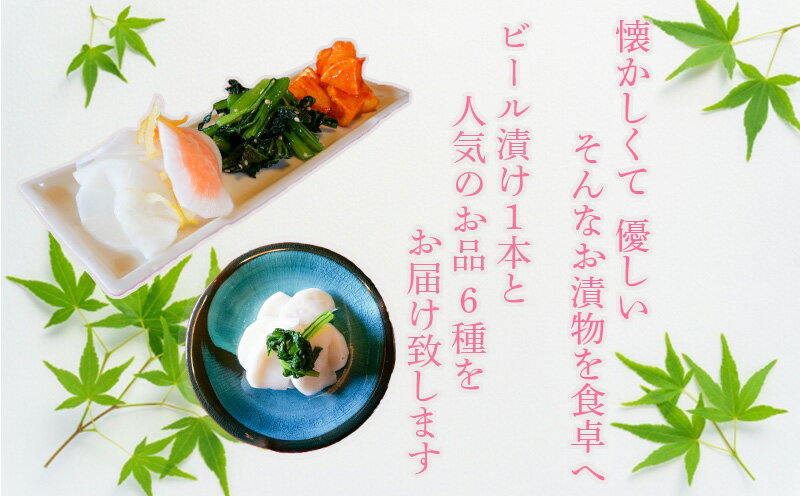 懐かしくて 優しい
そんなお漬物を食卓へ
ビール漬け1本と
人気のお品 6種を
お届け致します